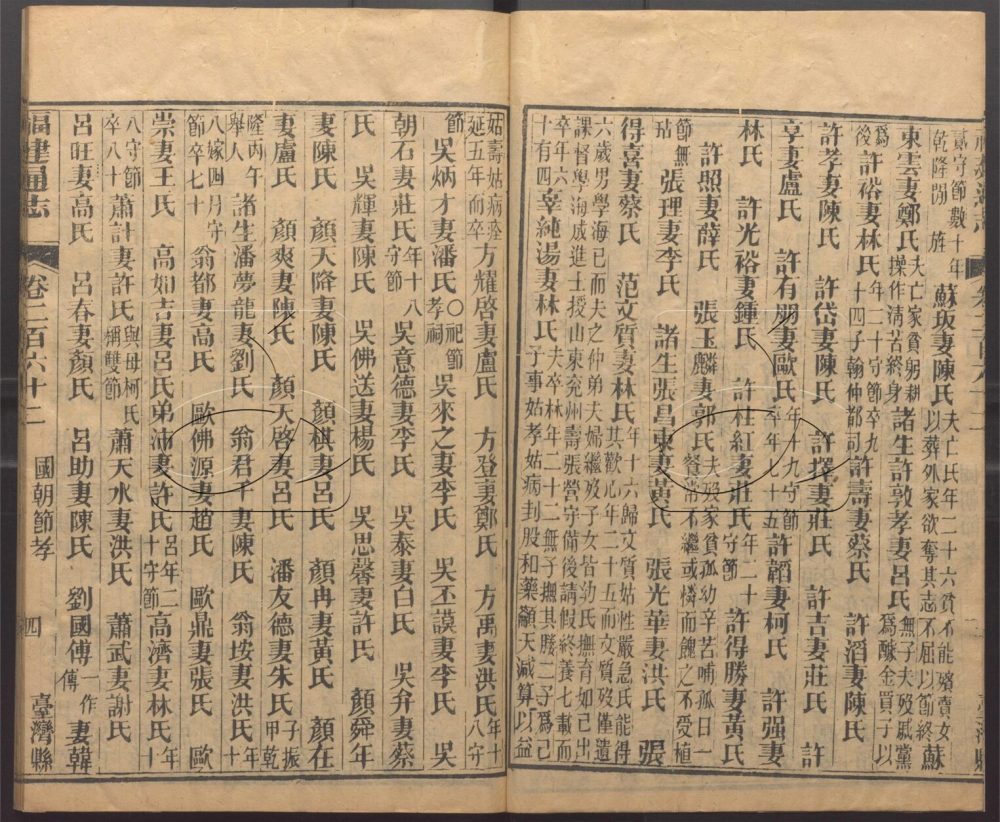 守節數十年乾隆間旌 蘇坂妻陳氏夫亡氏年二十六貧不能殯賣女以葬外家欲奪其志不屈以節終 蘇
東雲妻鄭氏夫亡家貧躬耕操作清苦終身 諸生許敦孝妻呂氏無子夫歿戚黨為醵金買子以
為後 許裕妻林氏年二十守節卒九十四子翰仲都司 許壽妻蔡氏 許滔妻陳氏
許孝妻陳氏 許岱妻陳氏 許擇妻莊氏 許吉妻莊氏 許
享妻盧氏 許有朋妻歐氏年十九守節卒年七十五 許韜妻柯氏 許强妻
林氏 許光裕妻鍾氏 許柱紅妻莊氏年二十守節 許得勝妻黃氏
許照妻薛氏 張玉麟妻郭氏夫歿家貧孤幼辛苦哺孤日一餐常不繼或憐而餽之不受植
節無玷 張理妻李氏 諸生張昌東妻黃氏 張光華妻洪氏 張
得喜妻蔡氏 范文質妻林氏年十六歸文質姑性嚴急氏能得其歡心年二十五而文質歿僅遺
六歲男學海已而夫之仲弟夫婦繼歿子女皆幼氏撫育如己出課督學海成進士授山東兗州壽張營守備後請假終養七載而
卒年六十有四 辜純湯妻林氏夫卒林年二十二無子撫其媵二子為己子事姑孝姑病刲股和藥籲天減算以益
姑壽姑病痊延五年而卒 方耀啓妻盧氏 方登妻鄭氏 方禹妻洪氏年十八守
節 吳炳才妻潘氏〇祀節孝祠 吳來之妻李氏 吳丕謨妻李氏 吳
朝石妻莊氏年十八守節 吳意德妻李氏 吳泰妻白氏 吳弁妻蔡
氏 吳輝妻陳氏 吳佛送妻楊氏 吳思馨妻許氏 顏舜年
妻陳氏 顏天降妻陳氏 顏棋妻呂氏 顏冉妻黃氏 顏在
妻盧氏 顏爽妻陳氏 顏天啓妻呂氏 潘友德妻朱氏子振甲乾
隆丙午舉人 諸生潘夢龍妻劉氏 翁君千妻陳氏 翁垵妻洪氏年十
八嫁四月守節卒七十 翁都妻高氏 歐佛源妻趙氏 歐鼎妻張氏 歐
崇妻王氏 高如吉妻呂氏弟沛妻許氏呂年二十守節 高濟妻林氏年十
八守節卒八十 蕭計妻許氏與母柯氏稱雙節 蕭天水妻洪氏 蕭武妻謝氏
呂旺妻高氏 呂春妻顏氏 呂助妻陳氏 劉國傳一作傅妻韓
福建通志 卷二百六十二 國朝節孝 四 臺灣縣